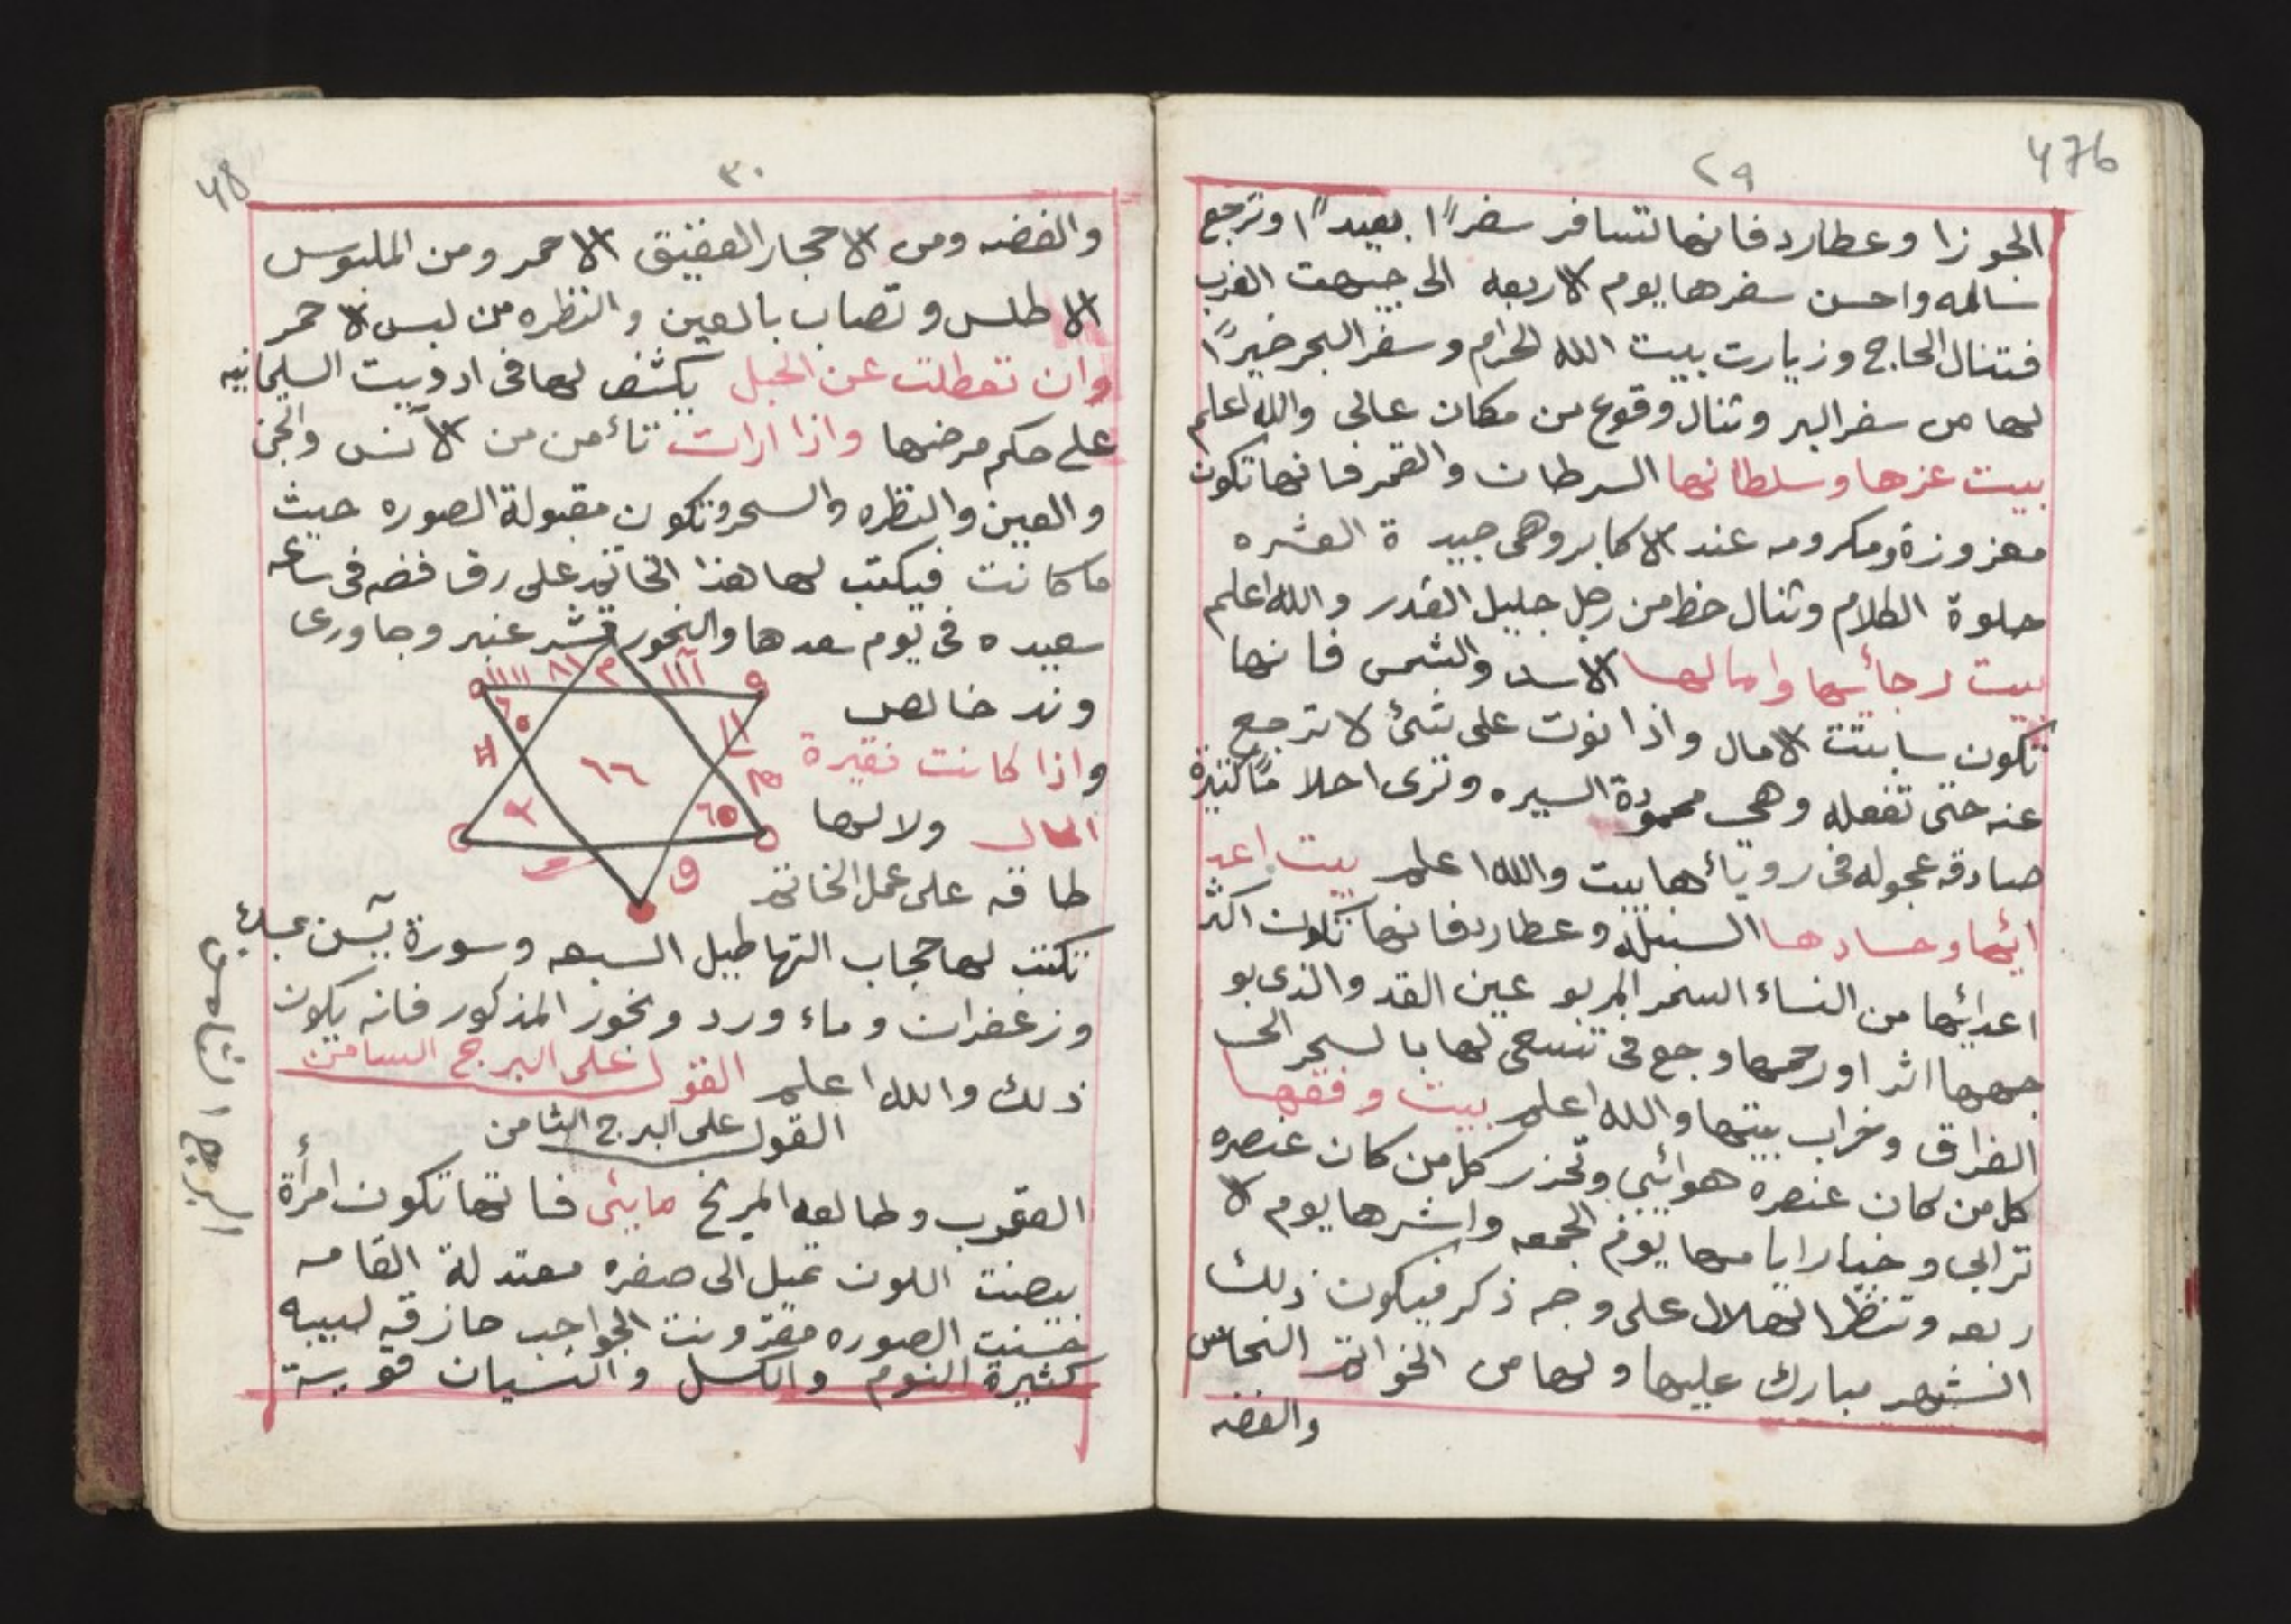 ٢٩
476
الجوزا وعطارد فانها تسافر سفراً بعيداً وترجع
سالمه واحسن سفرها يوم الاربعه الى جيهت الغرب
فتنال الحاج وزيارت بيت الله الحرام وسفر البحر خيراً
لها من سفر البر وتنال وقوع من مكان عالى والله اعلم
بيت عزها وسلطانها السرطان والقمر فانها تكون
معزوزة ومكرومه عند الاكابر وهى جيدة العشره
حلوة الكلام وتنال حظ من رجل جليل القدر والله اعلم
بيت رجائها وامالها الاسد والشمس فانها
تكون سابتت الامال واذا نوت على شئ لا ترجع
عنه حتى تفعله وهى محمودة السيره وترى احلاماً كثيرة
صادقه عجوله فى رويائها بيت والله اعلم بيت اعد
ائها وحسادها السنبله وعطارد فانها تكون اكثر
اعدائها من النساء السمر المربو عين القد والذى بو
جهها اثر او رحمها وجع فى تنسعى لها بالسحر الى
الفراق وخراب بيتها والله اعلم بيت وفقها
كل من كان عنصره هوائيى وتحزر كل من كان عنصره
ترابى وخيار ايامها يوم الجمعه واشرها يوم الا
ربعه وتنظر الهلال على وجه ذكر فيكون ذلك
الشهر مبارك عليها ولها من الخواتم النحاس
والفضه
٣٠
48
والفضه ومن الاحجار العقيق الاحمر ومن الملبوس
الاطلس وتصاب بالعين والنظره من لبس الاحمر
وان تعطلت عن الحبل يكشف لها فى ادوبيت السليمانيه
على حكم مرضها واذا ارات تأمن من الآنس والجن
والعين والنظره والسحر وتكون مقبولة الصوره حيث
ما كانت فيكتب لها هذا الخاتم على رق فضه فى ساعه
سعيده فى يوم سعدها والبخور قشر عنبر وجاورى
وند خالص
واذا كانت فقيرة
الحال ولا لها
طاقه على عمل الخاتم
٦٦
تكتب لها حجاب التهاطيل السبعه وسورة يٓسن بمسك
وزعفران وماء ورد وبخور المذكور فانه يكون
ذلك والله اعلم القول على البرج السامن
القول على البرج الثامن
العقرب وطالعه المريخ مايئى فانها تكون امرأة
بيضت اللون تميل الى صفره معتدلة القامه
حسنت الصوره مقرونت الحواجب حازقه لبيبه
كثيرة النوم والكسل والنسيان قوية
البرج الثامن